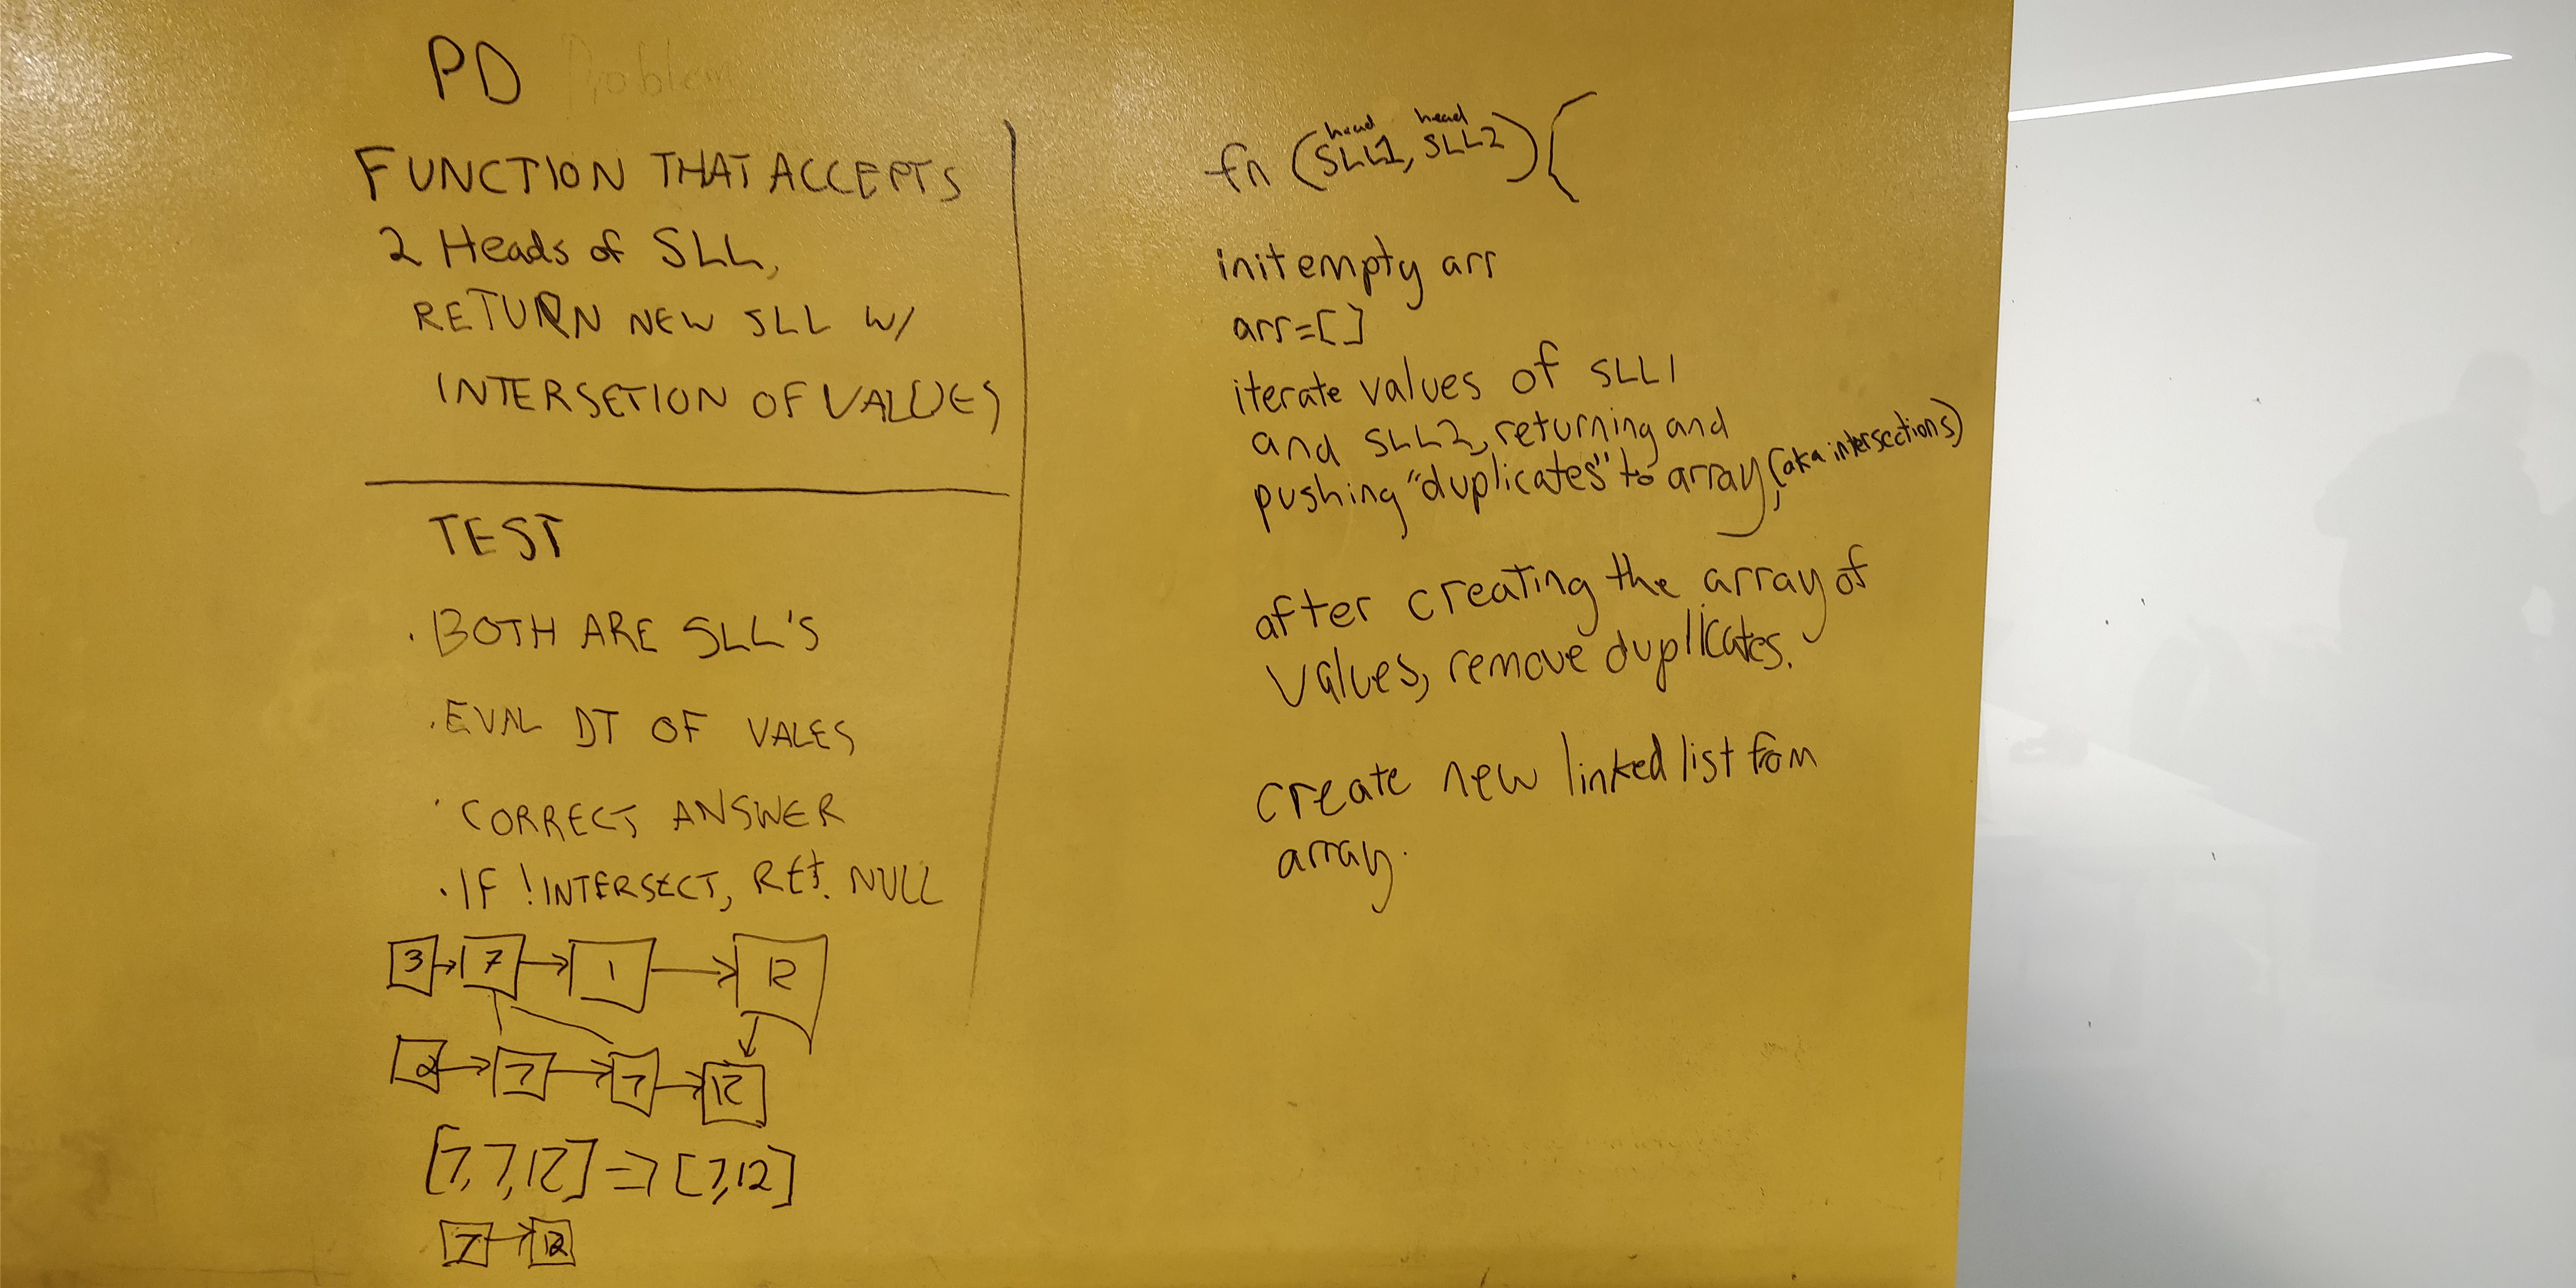 PD Problem
FUNCTION THAT ACCEPTS
2 Heads of SLL,
RETURN NEW SLL W/
INTERSETION OF VALUES
TEST
. BOTH ARE SLL'S
. EVAL DT OF VALES
. CORRECT ANSWER
. IF !INTERSECT, RET. NULL
3 7 1 12
2 7 7 12
[7, 7, 12] => [7, 12]
7 12
head head
fn (SLL1, SLL2) {
init empty arr
arr=[]
iterate values of SLL1
and SLL2, returning and
pushing "duplicates" to array, (aka intersections)
after creating the array of
values, remove duplicates.
create new linked list from
array.